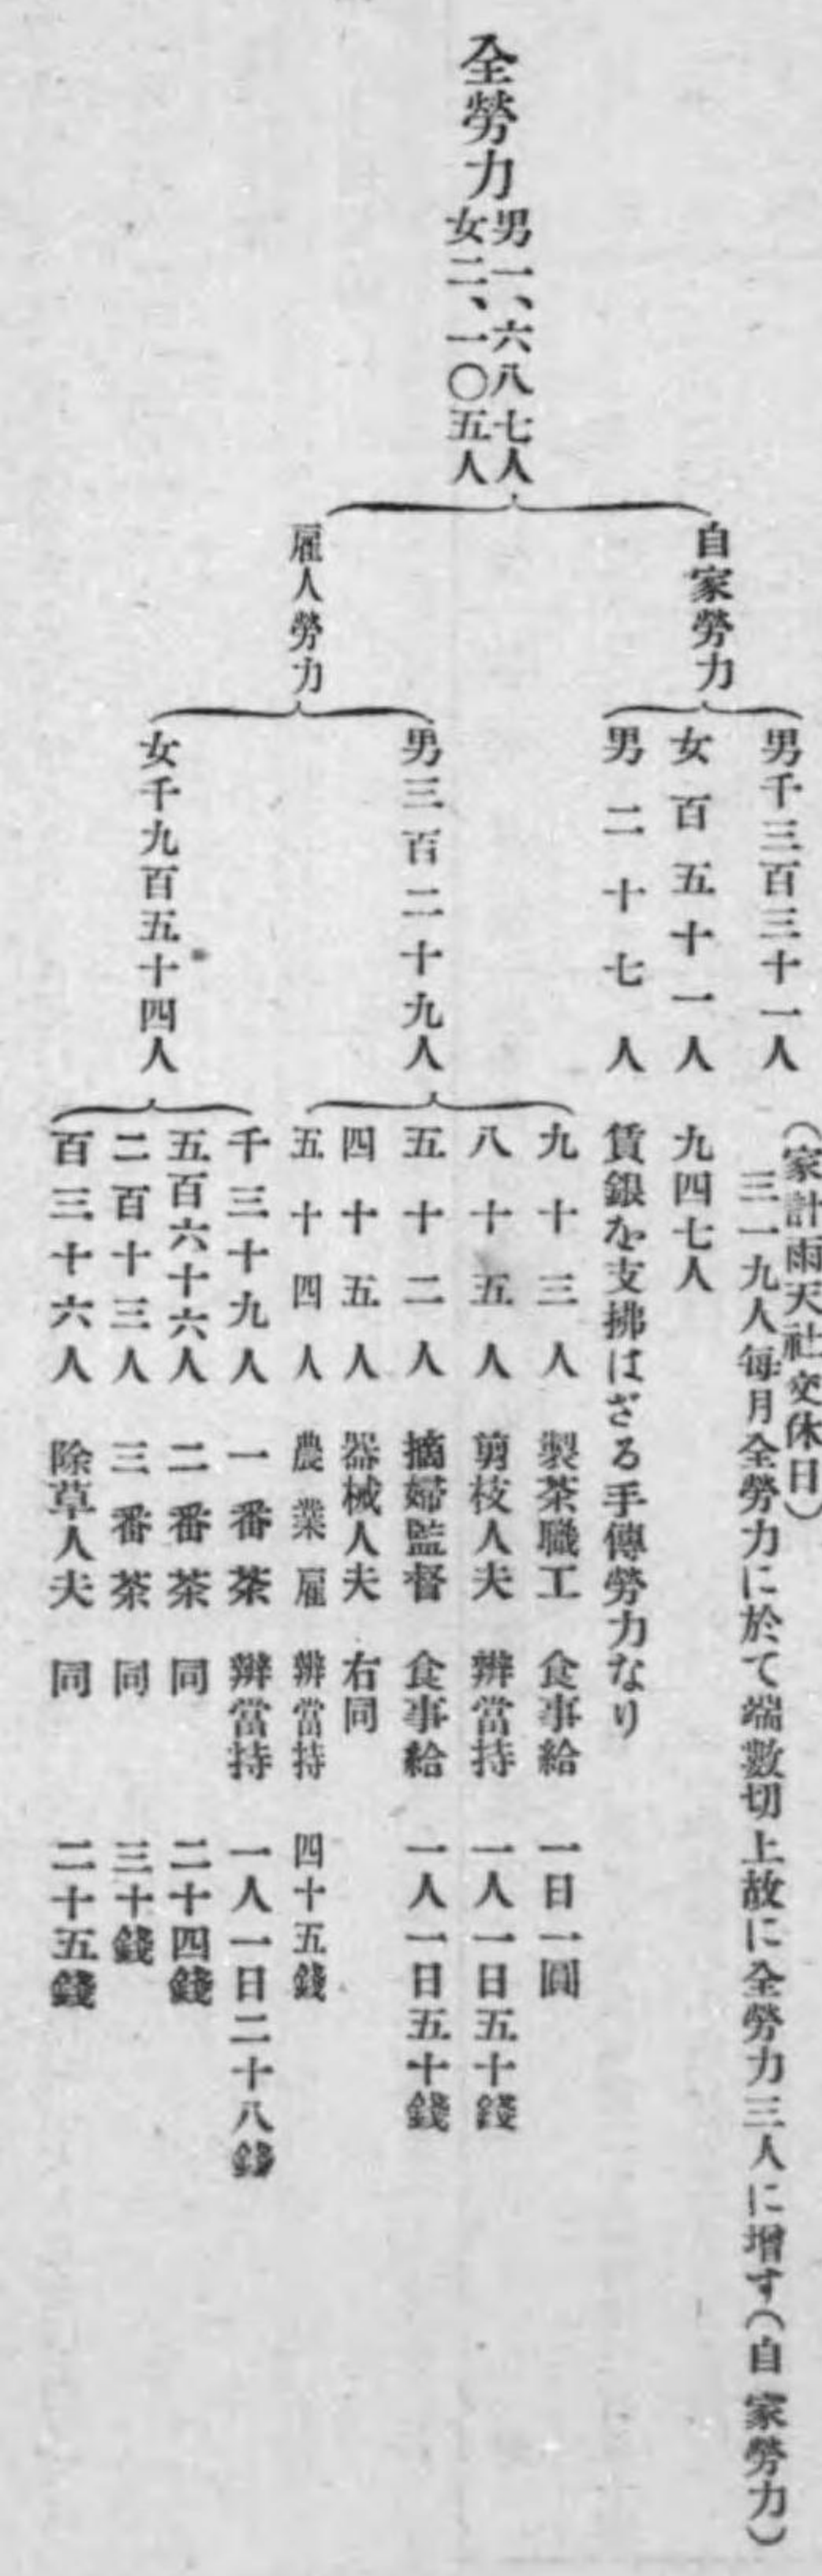 全勞力
男一、六八七人
女二、一〇五人
自家勞力
男千三百三十一人
（家計雨天社交休日）
三一九人每月全勞力に於て端數切上故に全勞力三人に增す（自家勞力）
女百五十一人
九四七人
男二十七人
賃銀を支拂はざる手傳勞力なり
雇人勞力
男三百二十九人
九十三人 製茶職工 食事給 一日一圓
八十五人 剪枝人夫 辨當持 一人一日五十錢
五十二人 摘婦監督 食事給 一人一日五十錢
四十五人 器械人夫 右同
五十四人 農業雇 辨當持 四十五錢
女千九百五十四人
千三十九人 一番茶 辨當持 一人一日二十八錢
五百六十六人 二番茶 同 二十四錢
二百十三人 三番茶 同 三十錢
百三十六人 除草人夫 同 二十五錢